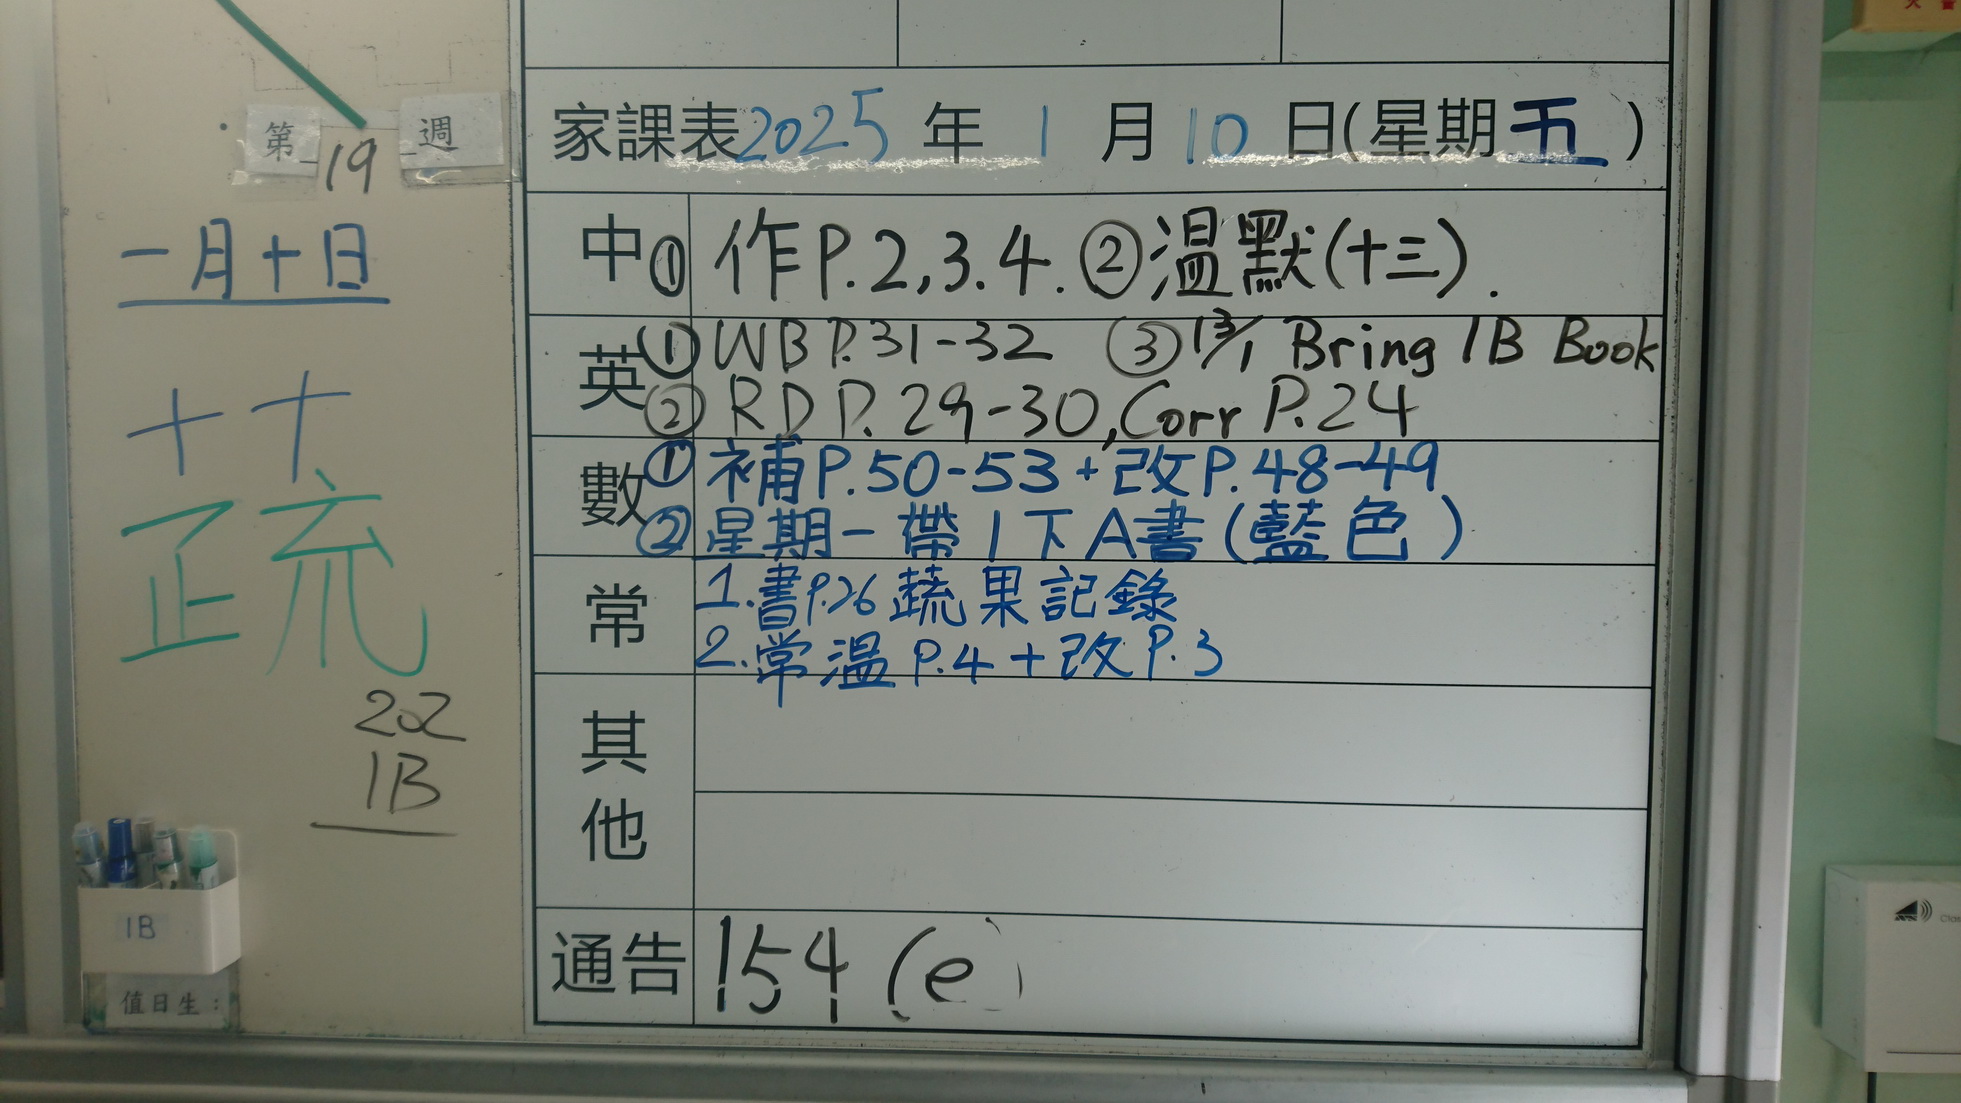 第 19 週
一月十日
十十
疏
202
1B
1B
值日生：
家課表2025年1月10日(星期五)
中 ① 作P.2,3.4. ② 溫默(十三).
英 ① WB P.31-32 ③ 13/1 Bring 1B Book
② RD P. 29-30, Corr P.24
數 ① 補P.50-53 + 改P.48-49
② 星期一帶1下A書(藍色)
常 1. 書P.26 蔬果記錄
2. 常溫 P.4 + 改P.3
其他
通告 154 (e)